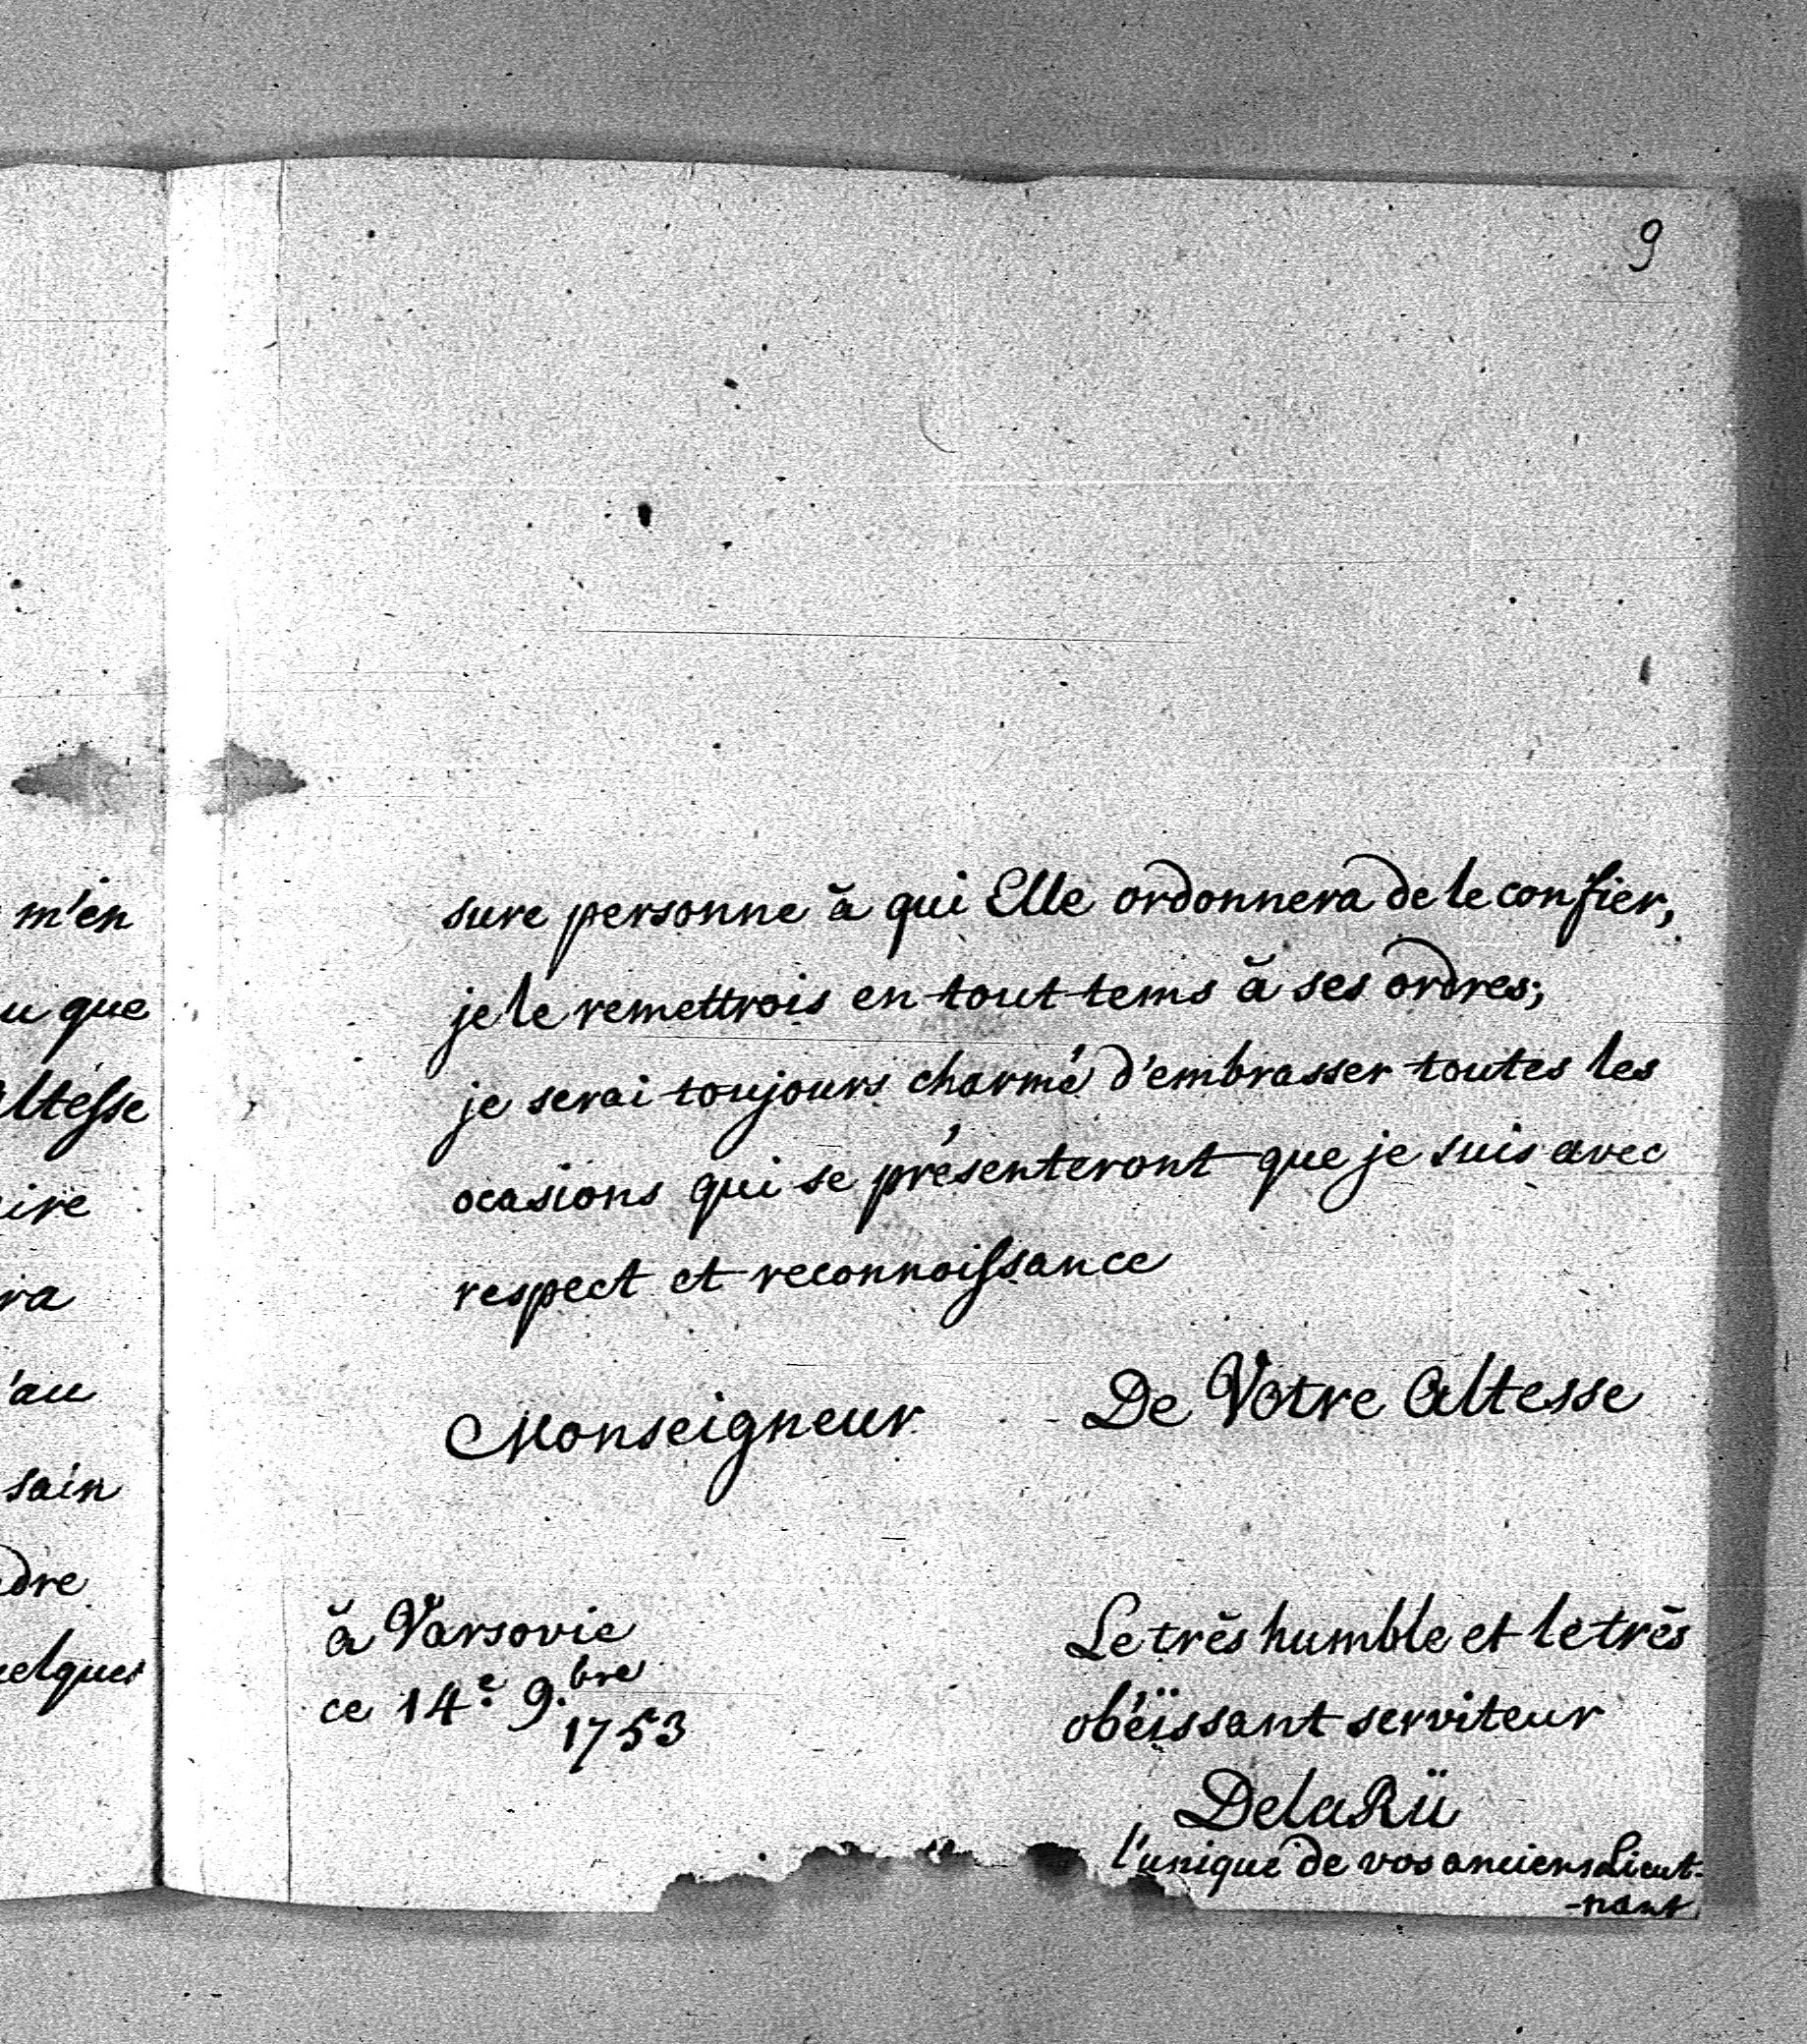 9
m'en
u que
altesse
ire
ra
'au
sain
dre
uelques
sure personne à qui Elle ordonnera de le confier,
je le remettrois en tout tems à ses ordres;
je serai toujours charmé d'embrasser toutes les
ocasions qui se présenteront que je suis avec
respect et reconnoissance
Monseigneur
De Votre Altesse
à Varsovie
ce 14e. 9.bre
1753
Le très humble et le très
obéïssant serviteur
DelaRü
l'unique de vos anciens Lieut-
-nant